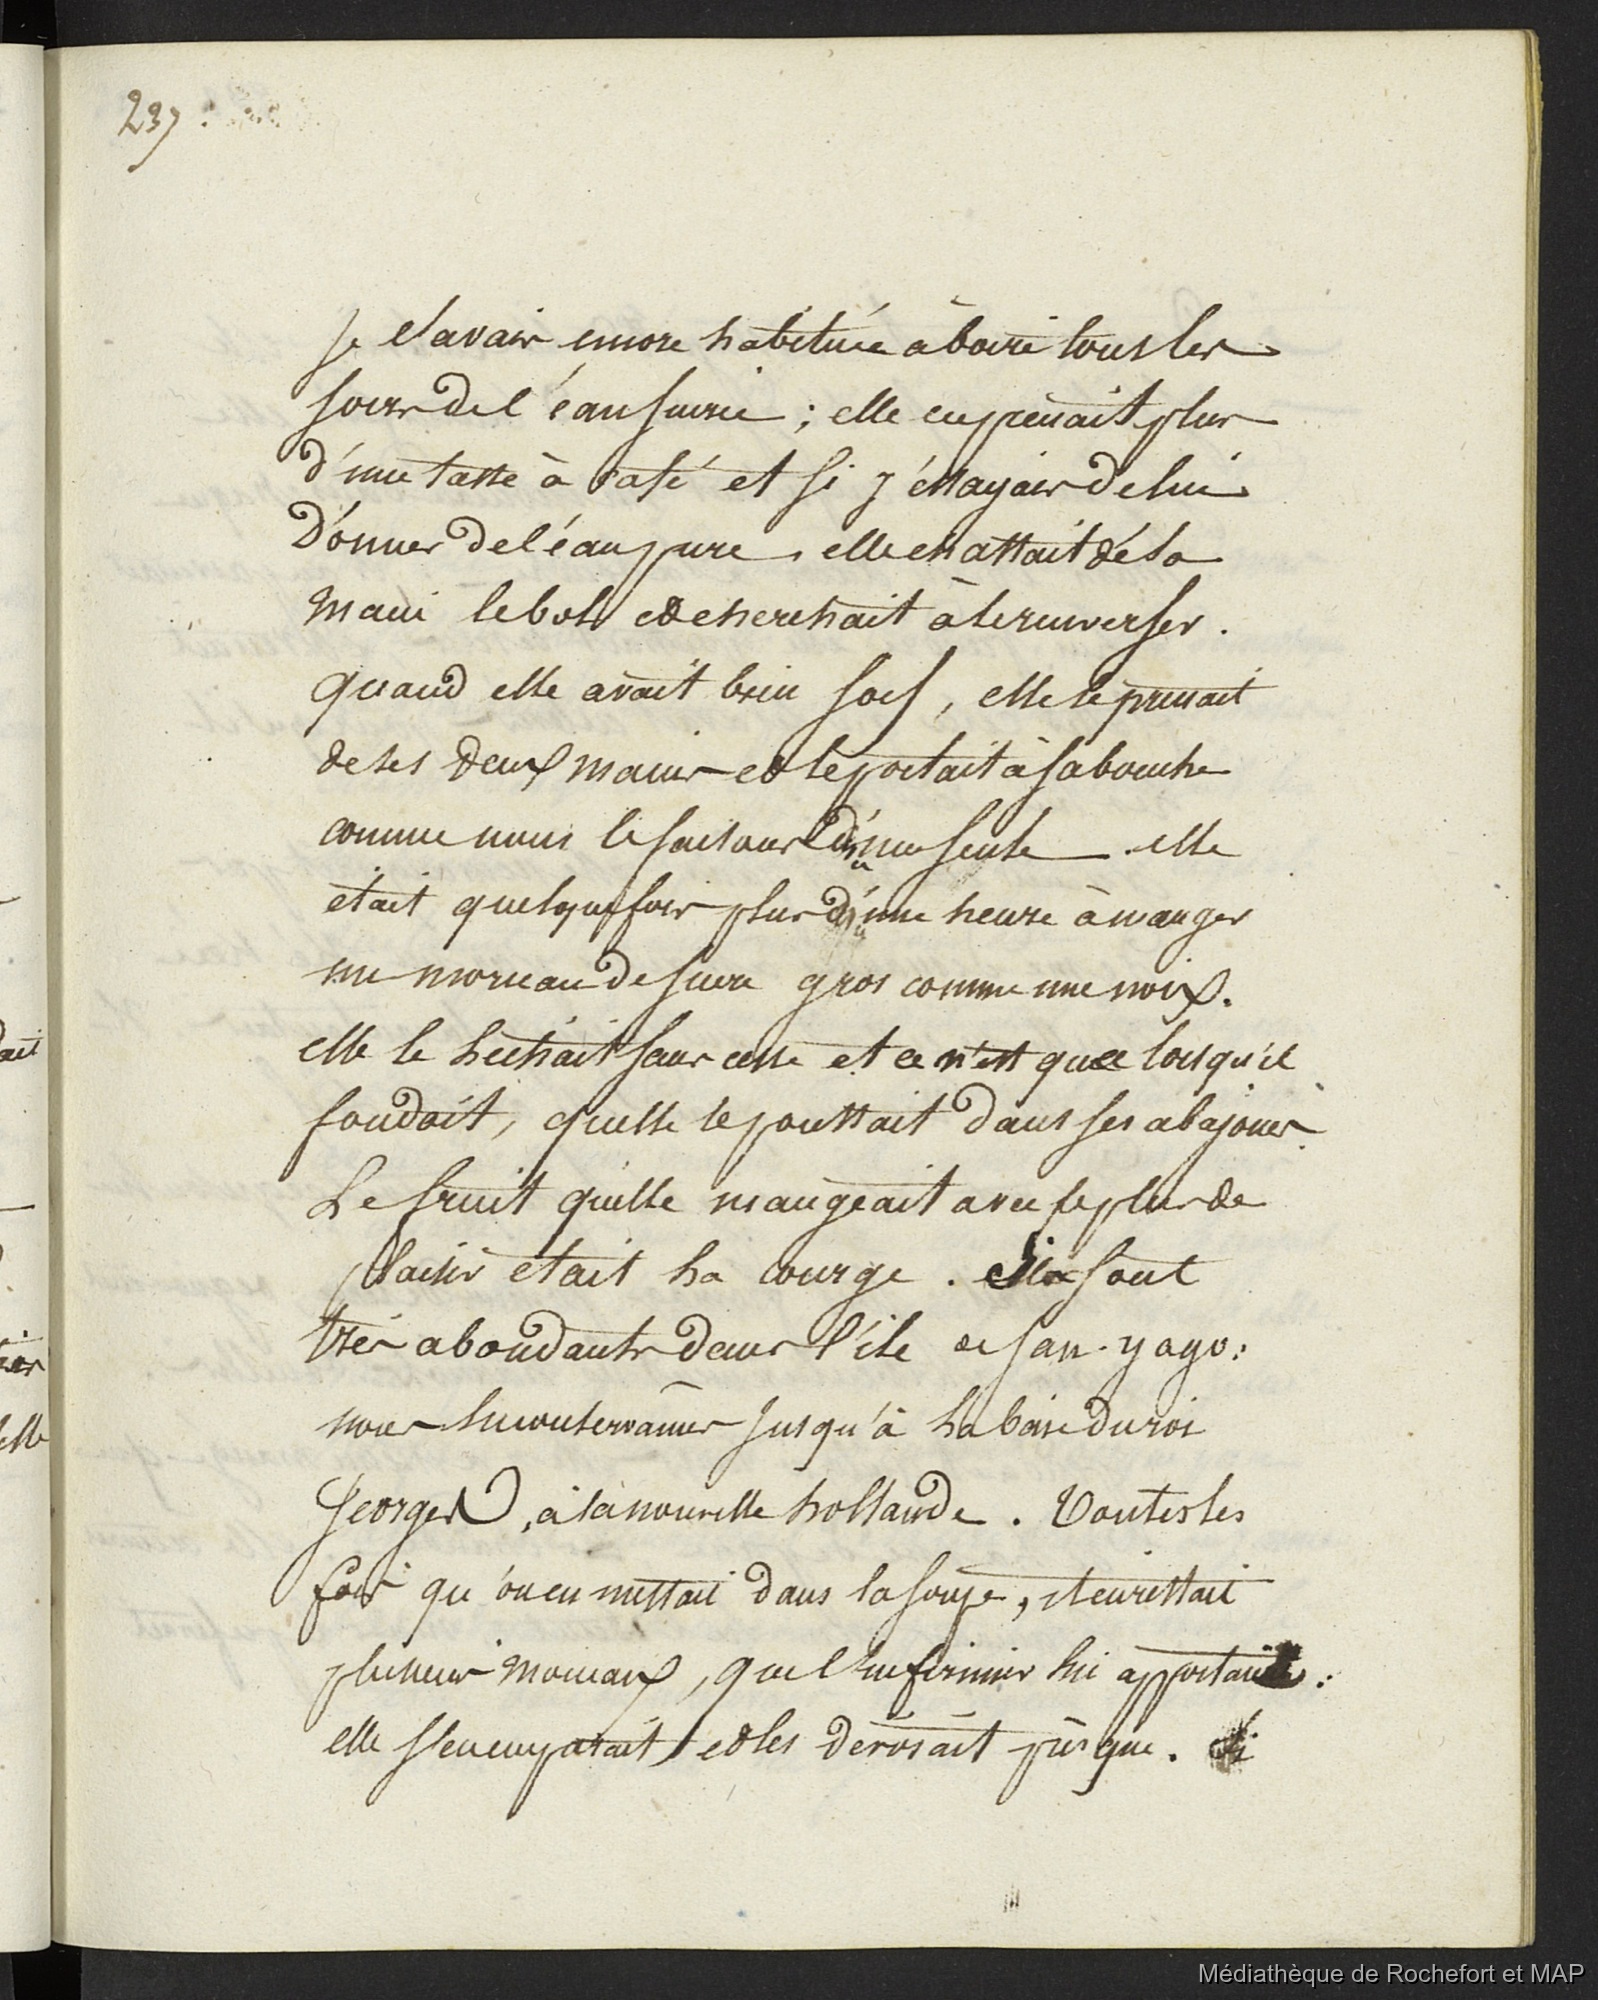 237.
Je l'avais encore habituée à boire tous les
soirs de l'éau sucrée ; elle en prenait plus
d'une tasse à café et si j'éssayais de lui
donner de l'éau pure, elle chassait de la
main le bol et cherchait à le renverser.
quand elle avait bien soif, elle le prenait
de ses deux mains et le portait à sa bouche
comme nous le faisons d'une seule - elle
était quelquefois plus d'une heure à manger
un morceau de sucre gros comme une noix.
elle le lèchait sans cesse et ce n'est que lorsqu'il
fondait, quelle le poussait dans ses abajoues.
Le fruit quelle mangeait avec le plus de
plaisir était la courge. Elles sont
très abondantes dans l'île de San-yago:
nous en conservâmes jusqu'à la baie du roi
Georges, à la nouvelle hollande. Toutes les
fois qu'on en mettait dans la soupe, il en restait
plusieurs morceaux, que l'infirmier lui apportait:
elle s'en emparait et les dévorait jusque. Si
ait
elle
Médiathèque de Rochefort et MAP